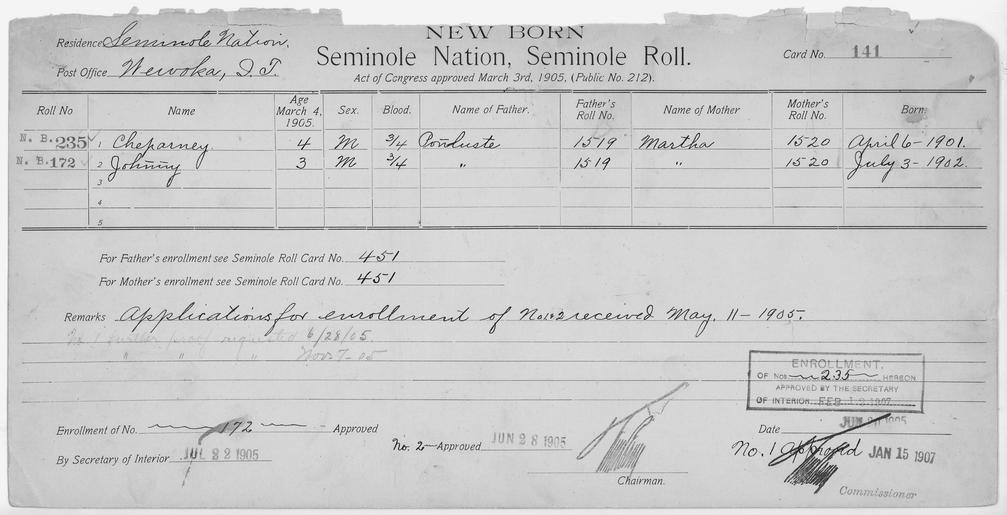 NEW BORN
Residence Seminole Nation.
Seminole Nation, Seminole Roll.
Card No. 141
Post Office Wewoka, I.T.
Act of Congress approved March 3rd, 1905, (Public No. 212).
Roll No Name Age March 4, 1905. Sex. Blood. Name of Father. Father's Roll No. Name of Mother Mother's Roll No. Born.
N. B. 235 1 Cheparney 4 M 3/4 Ponluste 1519 Martha 1520 April 6-1901.
N. B. 172 2 Johnny 3 M 3/4 " 1519 " 1520 July 3-1902.
3
4
5
For Father's enrollment see Seminole Roll Card No. 451
For Mother's enrollment see Seminole Roll Card No. 451
Remarks Applications for enrollment of No. 1 & 2 received May, 11-1905.
No. 1 further proof requested 6/28/05.
" " " Nov 7-05
ENROLLMENT.
OF Nos 235 HEREON
APPROVED BY THE SECRETARY
OF INTERIOR. FEB 12 1907
Enrollment of No. 172 Approved
No. 2 Approved JUN 28 1905
Date JUN 1905
By Secretary of Interior JUL 22 1905
No. 1 approved JAN 15 1907
Chairman.
Commissioner